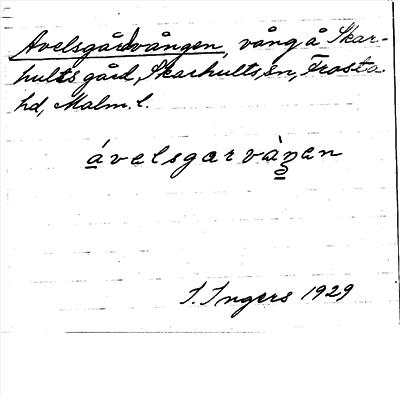 Avelsgårdvången, vång å Skar-
hults gård, Skarhults sn, Frosta
hd, Malm. l.
ávelsgarvàŋen
I. Ingers 1929